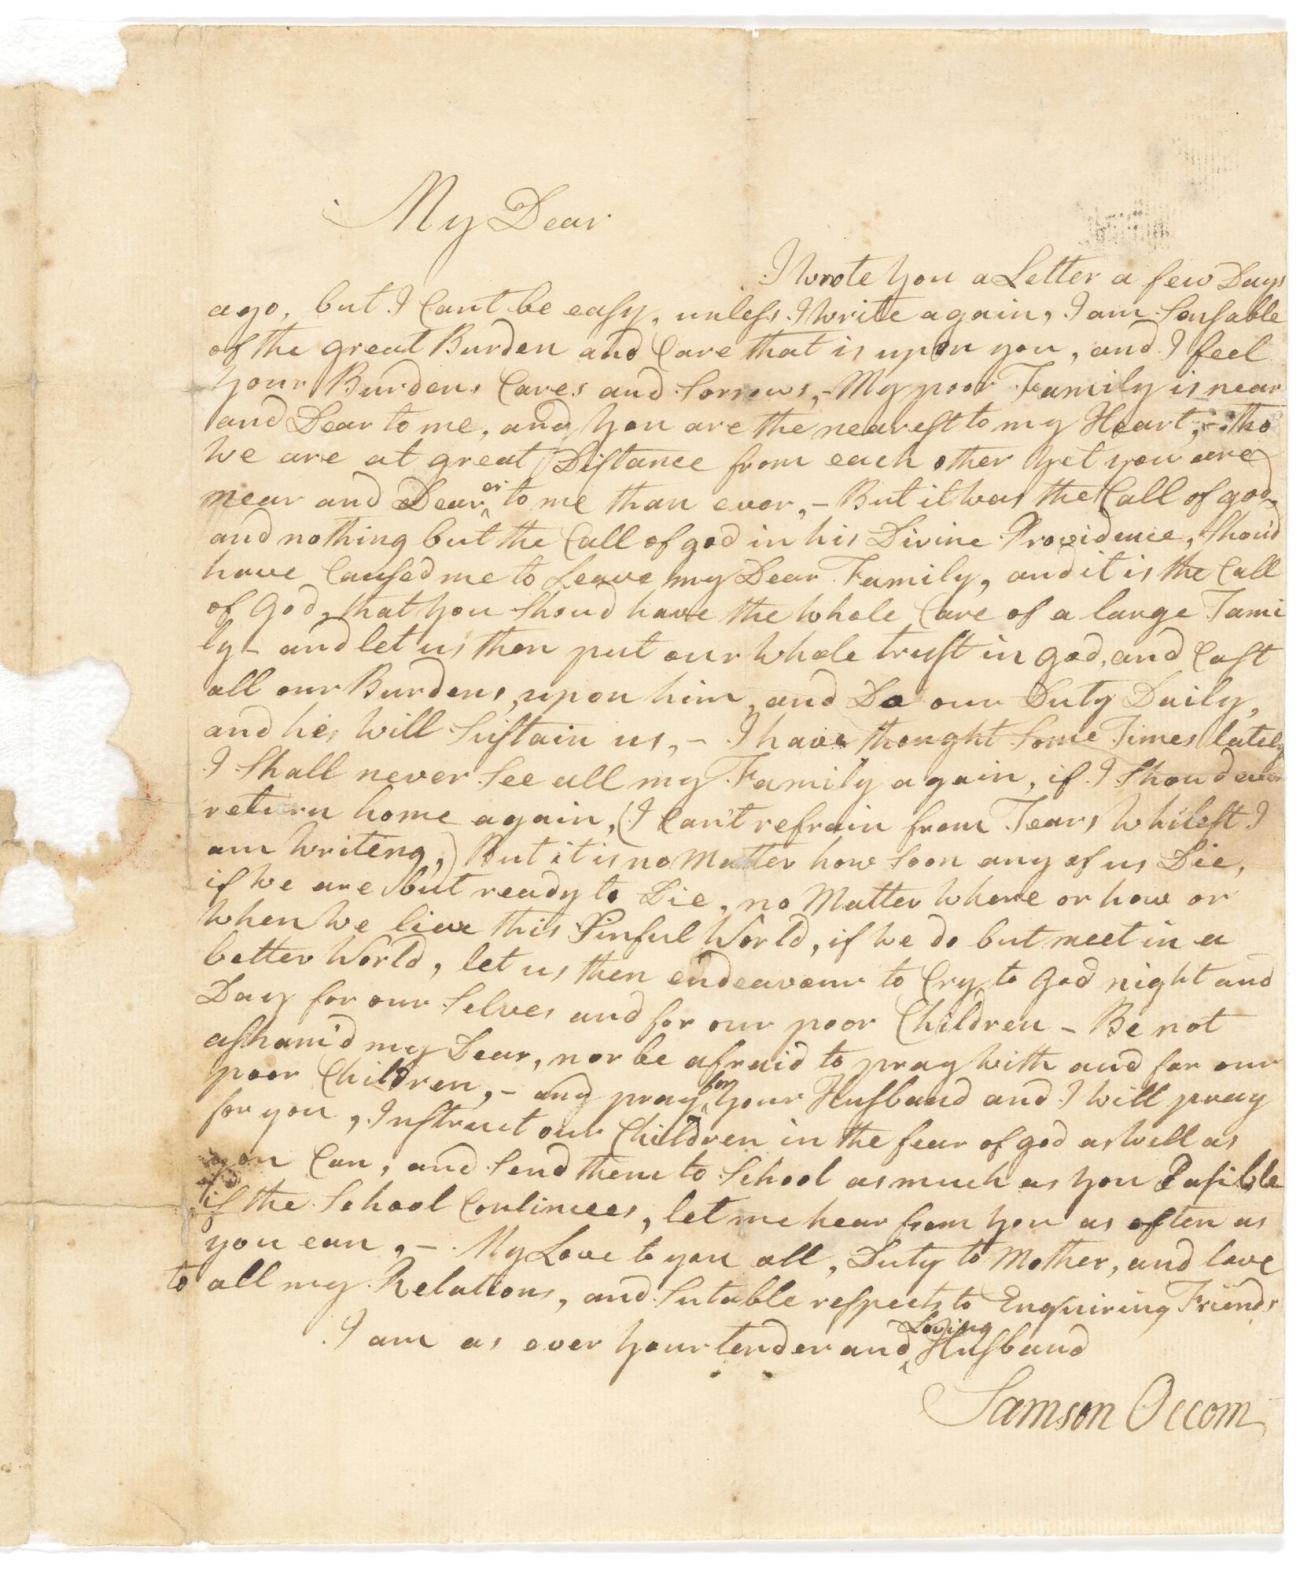 My Dear
I wrote you a Letter a few Days
ago, but I Cant be easy, unless I write again, I am Sensable
of the great Burden and Care that is upon you, and I feel
your Burdens Cares and Sorrows, – My poor Family is near
and Dear to me, and you are the nearest to my Heart, – tho
we are at great Distance from each other yet you are
near and Dearer to me than ever, – But it was the Call of god,
and nothing but the Call of god in his Divine Providence, Shou'd
have Caused me to Leave my Dear Family, and it is the Call
of God, that you Shoud have the whole Care of a large Fami
ly – and let us then put our whole trust in god, and Cast
all our Burdens, upon him, and Do our Duty Daily,
and he will Sustain us, – I have thought Some Times lately
I Shall never See all my Family again, if I Shoud ever
return home again, (I Can't refrain from Tears whilest I
am Writeng,) But it is no Matter how Soon any of us Die,
if we are but ready to Die, no Matter where or how or
when we lieve this Sinful World, if we do but meet in a
better World, let us then endeavour to Cry to God night and
Day for our Selves and for our poor Children – Be not
asham'd my Dear, nor be afraid to pray with and for our
poor Children, – and pray for your Husband and I will pray
for you, Instruct our Children in the fear of god as well as
you Can, and Send them to School as much as you Possible
if the School Continuees, let me hear from you as often as
you can, – My Love to you all, Duty to Mother, and love
to all my Relations, and Sutable respects to Enquiring Friends
I am as ever your tender and Loving Husband
Samson Occom